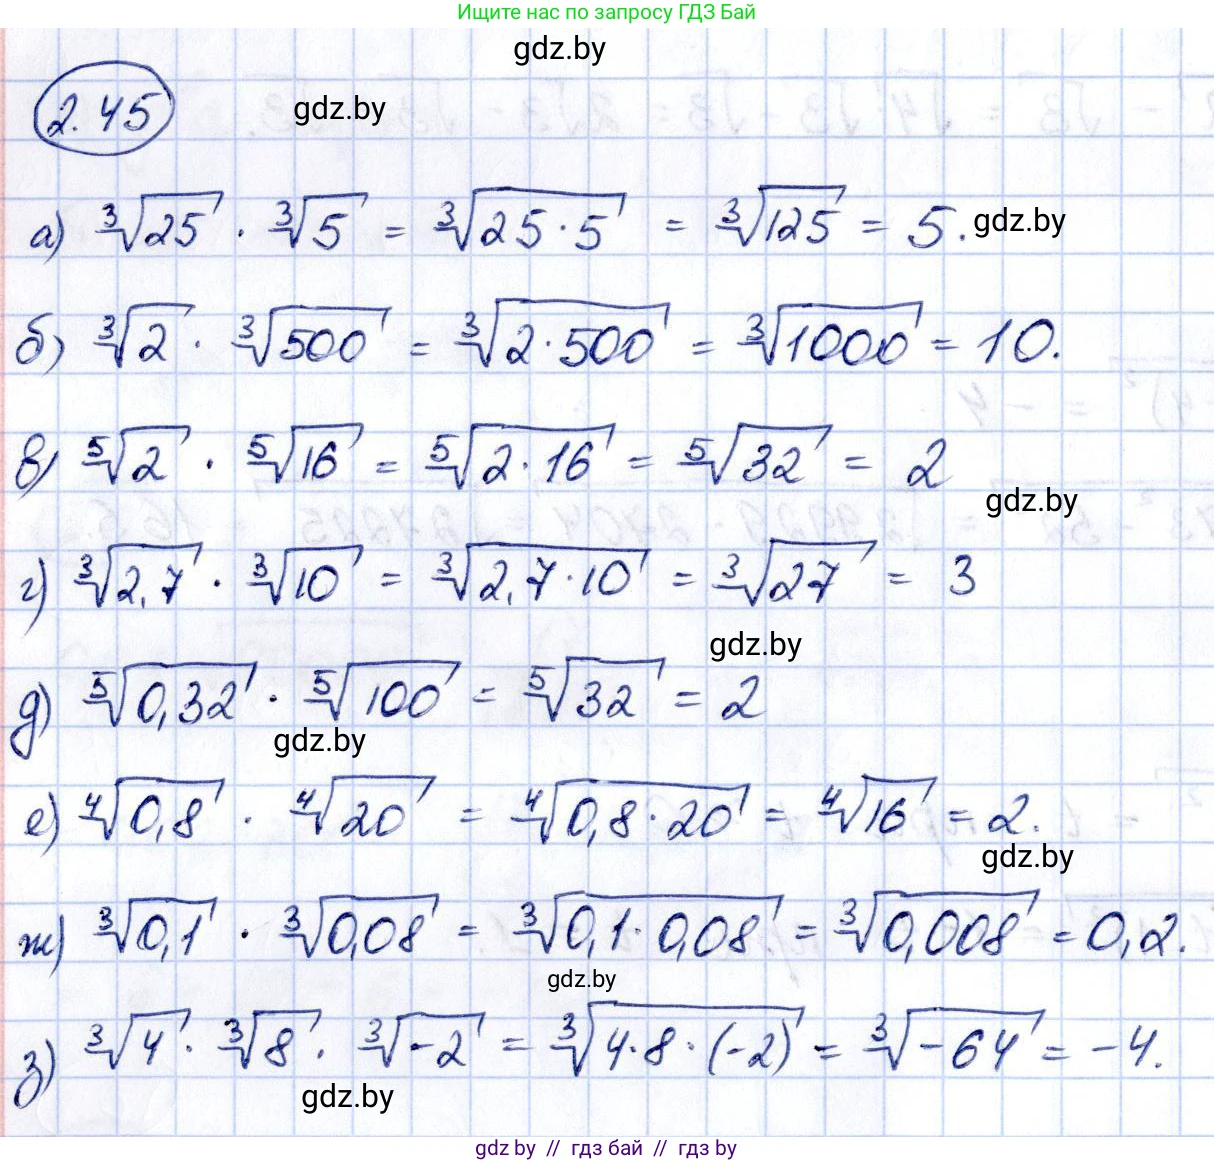 Ищите нас по запросу ГДЗ Бай
gdz.by
2.45
gdz.by
а) ∛25 · ∛5 = ∛(25·5) = ∛125 = 5. gdz.by
б) ∛2 · ∛500 = ∛(2·500) = ∛1000 = 10.
в) ⁵√2 · ⁵√16 = ⁵√(2·16) = ⁵√32 = 2
gdz.by
г) ∛2,7 · ∛10 = ∛(2,7·10) = ∛27 = 3
gdz.by
д) ⁵√0,32 · ⁵√100 = ⁵√32 = 2
gdz.by
е) ⁴√0,8 · ⁴√20 = ⁴√(0,8·20) = ⁴√16 = 2.
gdz.by
ж) ∛0,1 · ∛0,08 = ∛(0,1·0,08) = ∛0,008 = 0,2.
gdz.by
з) ∛4 · ∛8 · ∛-2 = ∛(4·8·(-2)) = ∛-64 = -4.
gdz.by
gdz by // гдз бай // гдз by